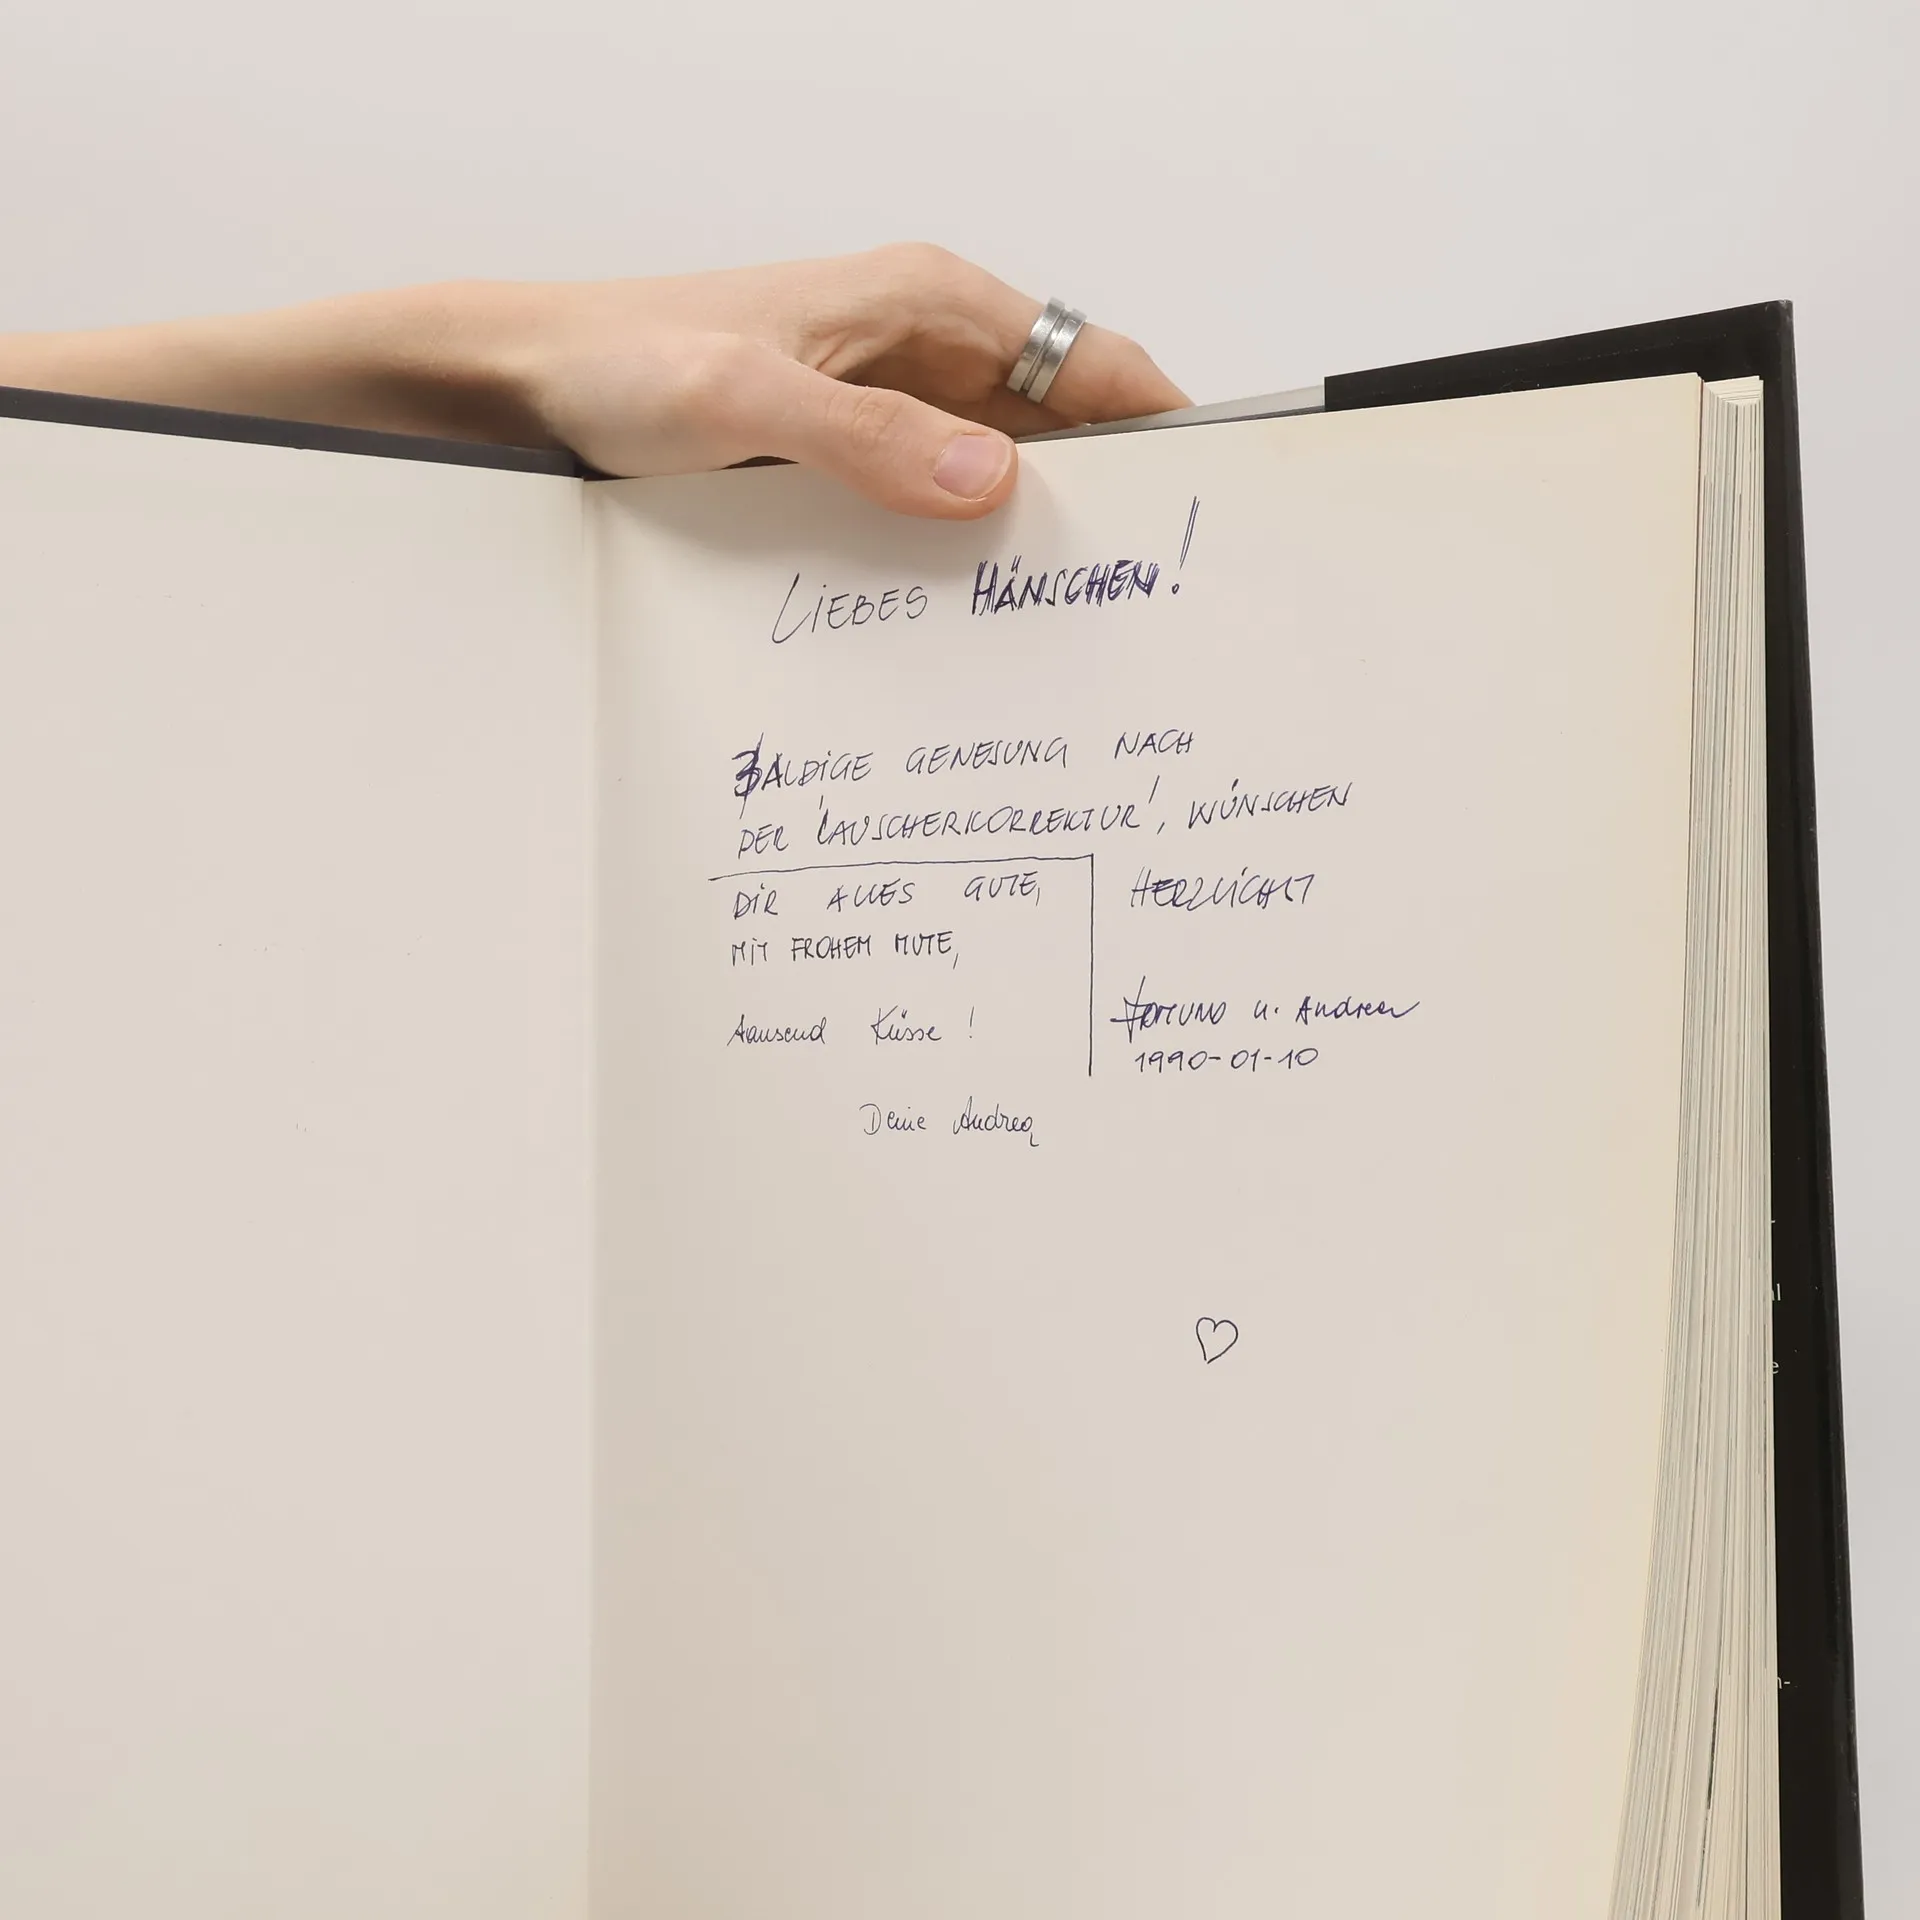 LIEBES HÄNSCHEN!
BALDIGE GENESUNG NACH
DER 'LAUSCHERKORREKTUR', WÜNSCHEN
HERZLICHST
u. Andrea
1990-01-10
DIR ALLES GUTE,
MIT FROHEM MUTE,
tausend Küsse!
Deine Andrea